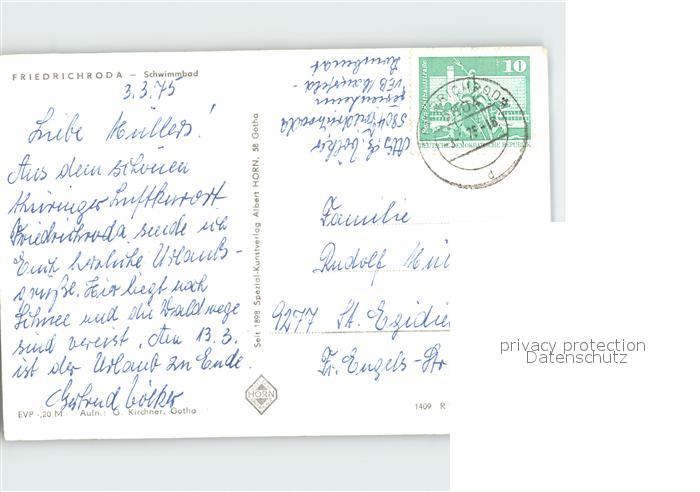 FRIEDRICHRODA – Schwimmbad
3.3.75
Liebe Müllers!
Aus dem schönen
thüringer Luftkurort
Friedrichroda sende ich
Euch herzliche Urlaubs-
grüße. Hier liegt noch
Schnee und die Waldwege
sind vereist. Am 13.3.
ist der Urlaub zu Ende.
Gertrud Völker
EVP -,20 M Aufn.: G. Kirchner, Gotha
Seit 1898 Spezial-Kunstverlag Albert HORN, 58 Gotha
HORN
Abs. G. Völker
5804 Friedrichroda
Ferienheim
VEB Mansfeld-
10
DEUTSCHE DEMOKRATISCHE REPUBLIK
d
Familie
Rudolf Mül
9277 St. Egidien
Fr. Engels-Str
1409 R
privacy protection
Datenschutz